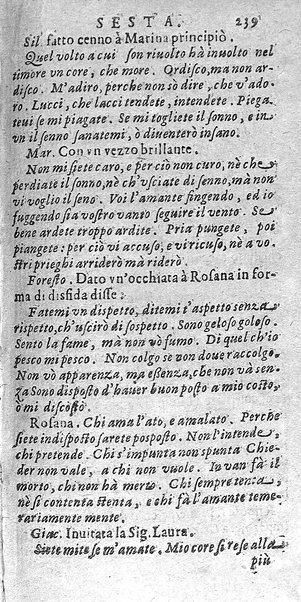 SESTA. 239
Sil. fatto cenno à Marina principiò.
Quel volto a cui son riuolto hà inuolto nel
timore vn core, che more. Ordisco, ma non ar-
disco. M'adiro, perche non sò dire, che v'ado-
ro. Lucci, che lacci tendete, intendete. Piega-
teui se mi piagate. Se mi togliete il sonno, e in
vn il senno sanatemi, ò diuenterò insano.
Mar. Con vn vezzo brillante.
Non mi siete caro, e per ciò non curo, nò che
perdiate il sonno, nè ch'vsciate di senno, ma nòn
vi voglio il seno. Voi l'amante fingendo, ed io
fuggendo sia vostro vanto seguire il vento. Se
bene ardete troppo ardite. Pria pungete, poi
piangete: per ciò vi accuso, e vi ricuso, nè a vo-
stri prieghi arriderà ma riderò.
Foresto. Dato vn'occhiata à Rosana in for-
ma di disfida disse:
Fatemi vn dispetto, ditemi s'aspetto senza
rispetto, ch'uscirò di sospetto. Sono geloso goloso.
Sento la fame, mà non vò fumo. Di quel ch'io
pesco mi pesco. Non colgo se von doue raccolgo.
Non vò apparenza, ma essenza, che non và sen-
za Sono disposto d'hauer buon posto a mio costo,
ò mi discosto.
Rosana. Chi ama l'ato, e amalato. Perche
siete indisposto sarete posposto. Non l'intende,
chi pretende. Chi s'impunta non spunta Chie-
der non vale, a chi non vuole. In van fà il
morto, chi non hà merto. Chi sempre tenta,
nè si contenta stenta, e chi fà l'amante teme-
rariamente mente.
Giac. Inuitata la Sig. Laura.
Siate mite se m'amate. Mio core si rese alla
più